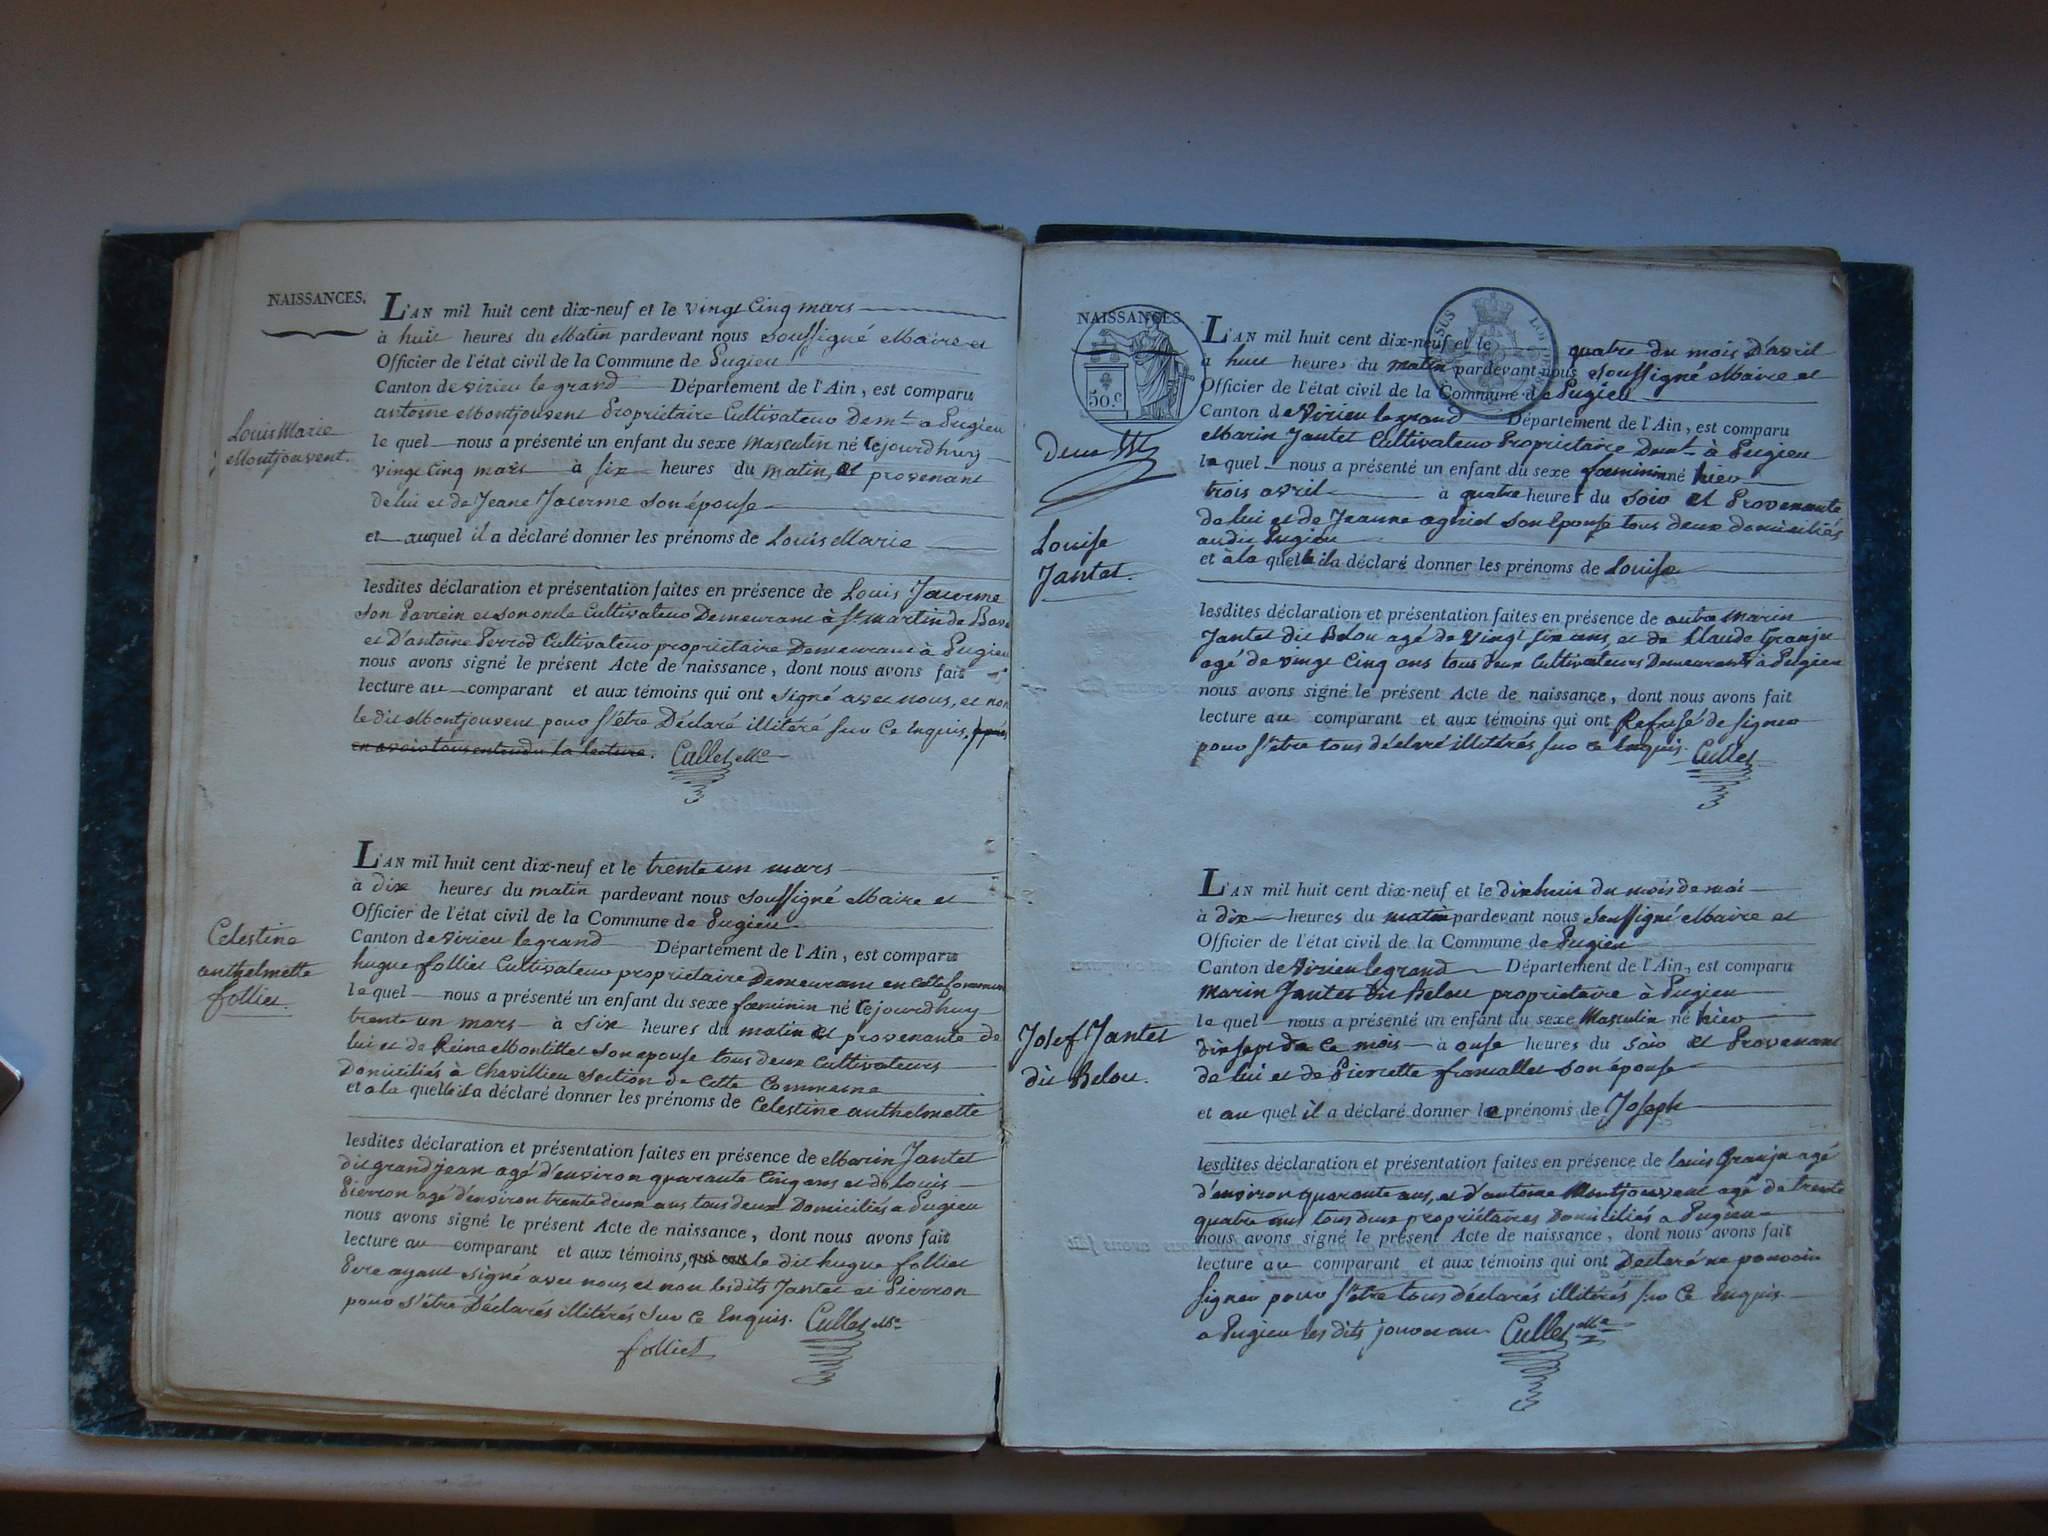 NAISSANCES.
L'AN mil huit cent dix-neuf et le vingt cinq mars
à huit heures du Matin pardevant nous soussigné Maire et
Officier de l'état civil de la Commune de Pugieu
Canton de virieu le grand Département de l'Ain, est comparu
antoine Montjouvent Propriétaire Cultivateur Demt a Pugieu
Louis Marie
Montjouvent.
le quel nous a présenté un enfant du sexe masculin né cejourdhuy
vingt cinq mars à six heures du matin et provenant
de lui et de Jeane Jacerme son épouse
et auquel il a déclaré donner les prénoms de Louis Marie
lesdites déclaration et présentation faites en présence de Louis Jacerme
son Parrein et son oncle Cultivateur Demeurant à St martin de Bav
et D'antoine Perrod Cultivateur propriétaire Demeurant à Pugieu
nous avons signé le présent Acte de naissance, dont nous avons fait
lecture au comparant et aux témoins qui ont signé avec nous, et non
le dit Montjouvent pour s'être Déclaré illitéré sur ce Enquis, après
en avoir tous entendu la lecture. Cullet Me
L'AN mil huit cent dix-neuf et le trente un mars
à dix heures du matin pardevant nous soussigné Maire et
Officier de l'état civil de la Commune de Pugieu
Canton de virieu le grand Département de l'Ain, est comparu
Celestine
anthelmette
follier.
hugue folliet Cultivateur propriétaire Demeurant en cette Commun
le quel nous a présenté un enfant du sexe fœminin né cejourdhuy
trente un mars à six heures du matin et provenante de
lui et de Reine Montillet son epouse tous deux Cultivateurs
Domiciliés à Chavillieu Section de Cette Commune
et a la quelle il a déclaré donner les prénoms de Celestine anthelmette
lesdites déclaration et présentation faites en présence de Marin Jantet
dit grand jean agé d'environ quarante Cinq ans et de Louis
Pierron agé d'environ trente deux ans tous deux Domiciliés a Pugieu
nous avons signé le présent Acte de naissance, dont nous avons fait
lecture au comparant et aux témoins, qui ont le dit hugue folliet
Pere ayant signé avec nous, et non les dits Jantet et Pierron
pour s'être Déclarés illitérés sur ce Enquis. Cullet Me
folliet
NAISSANCES.
50.c
L'AN mil huit cent dix-neuf et le quatre du mois d'avril
a huit heures du matin pardevant nous soussigné Maire et
Officier de l'état civil de la Commune de Pugieu
Canton de Virieu le grand Département de l'Ain, est comparu
Marin Jantet Cultivateur Propriétaire Demt à Pugieu
le quel nous a présenté un enfant du sexe fœminin né hier
trois avril à quatre heures du soir et Provenante
de lui et de Jeanne agniel son Epouse tous deux domiciliés
audit Pugieu
Louise
Jantet.
et à la quelle il a déclaré donner les prénoms de Louise
lesdites déclaration et présentation faites en présence de autre Marin
Jantet dit Belou agé de vingt six ans, et de Claude Granju
agé de vingt Cinq ans tous deux Cultivateurs Demeurants à Pugieu
nous avons signé le présent Acte de naissance, dont nous avons fait
lecture au comparant et aux témoins qui ont Refusé de signer
pour s'être tous déclaré illitérés sur ce Enquis. Cullet
L'AN mil huit cent dix-neuf et le dix huit du mois de mai
à dix heures du matin pardevant nous soussigné Maire et
Officier de l'état civil de la Commune de Pugieu
Canton de Virieu le grand Département de l'Ain, est comparu
Marin Jantet Dit Belou propriétaire à Pugieu
Josef Jantet
dit Belou.
le quel nous a présenté un enfant du sexe Masculin né hier
dix sept de ce mois à onse heures du soir et Provenant
de lui et de Pierrette francallet son épouse
et au quel il a déclaré donner le prénoms de Joseph
lesdites déclaration et présentation faites en présence de louis Granju agé
d'environ quarante ans, et d'antoine Montjouvent agé de trente
quatre ans tous deux propriétaires Domiciliés a Pugieu
nous avons signé le présent Acte de naissance, dont nous avons fait
lecture au comparant et aux témoins qui ont Declaré ne pouvoir
signer pour s'etre tous déclarés illitérés sur ce Enquis.
a Pugieu les dits jour et an Cullet Me